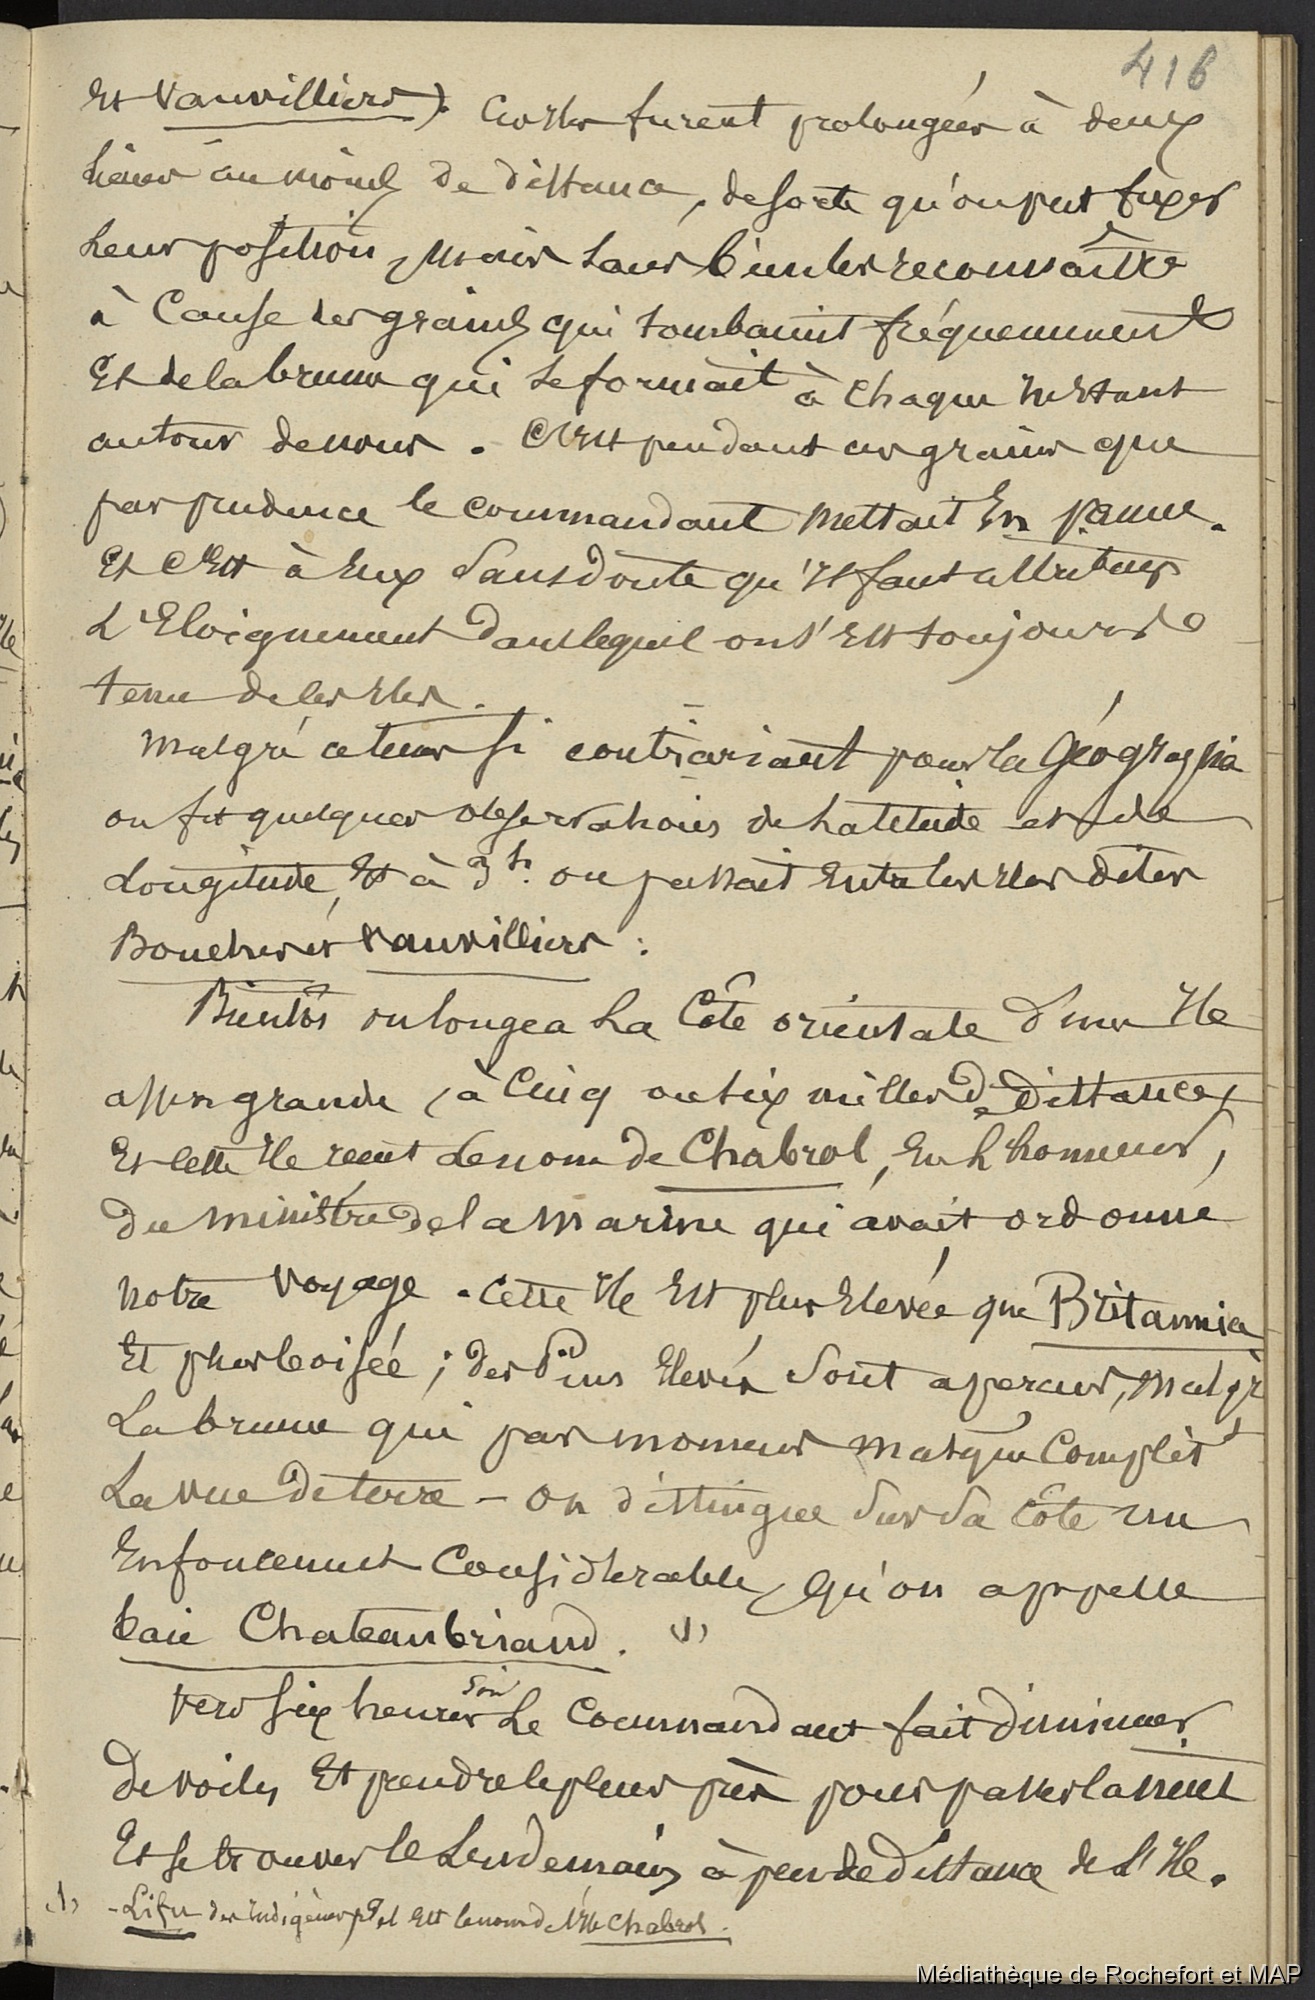 416
Et Vauvilliers). Ces Iles furent prolongées à deux
lieues au moins de distance, de sorte qu'on put fixer
leur position, mais sans bien les reconnaître
à Cause des grains qui tombaient fréquemment
Et de la brume qui se formait à chaque Instant
autour de nous. C'Est pendant ces grains que
par prudence le commandant mettait En panne.
Et C'Est à Eux sans doute qu'Il faut attribuer
L'Eloignement dans lequel on s'Est toujours
tenu de les Iles.
Malgré ce tems si contrariant pour la Géographie
on fit quelques observations de Latitude et de
Longitude, Et à 3h. on passait Entre les Iles dites
Boucher et Vauvilliers :
Bientôt on longea La Côte orientale d'une Ile
assez grande, à Cinq ou six milles de Distance,
Et cette Ile reçut Le nom de Chabrol, En l'honneur,
du ministre de la Marine qui avait ordonné
notre Voyage. Cette Ile Est plus Elevée que Britannia
Et plus boisée ; des Pins Elevés sont aperçus, Malgré
La brume qui par momens masque Complèt
La vue de terre – On distingue sur sa Côte un
Enfoncement Considérable, qu'on appelle
baie Chateaubriand. (1)
Vers six heures soir Le Commandant fait diminuer
De voiles Et prendre le plus près pour passer la nuit
Et se trouver le Lendemain à peu de distance de L'Ile.
(1) - Lifu des Indigènes tel Est le nom de l'Ile Chabrol.
Médiathèque de Rochefort et MAP